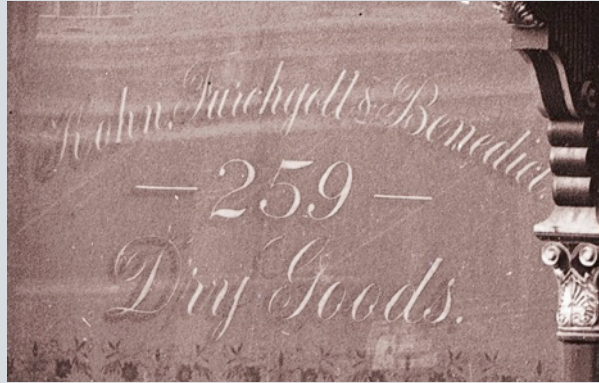 Kohn, Furchgott & Benedict.
— 259 —
Dry Goods.